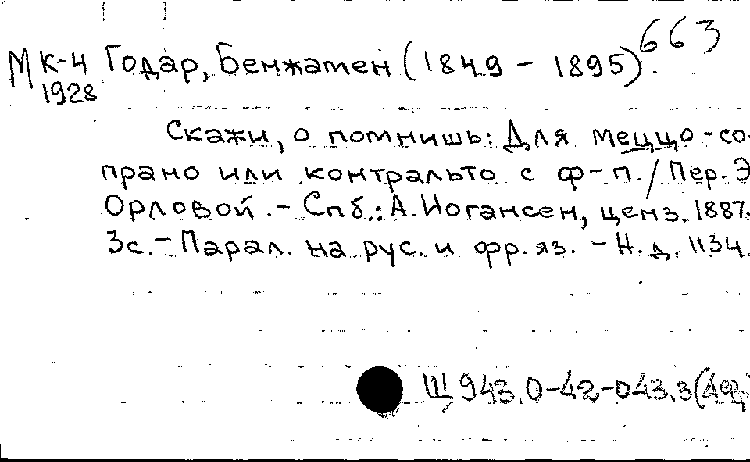 663
М К-4 Годар, Бенжамен (1849 - 1895).
1928
Скажи, о помнишь: Для меццо-со-
прано или контральто с ф-п./Пер. Э
Орловой. - Спб.: А. Иогансен, ценз. 1887.
3с. - Парал. на рус. и фр. яз. - Н. д. 1134.
Щ 943.0-42-043.3